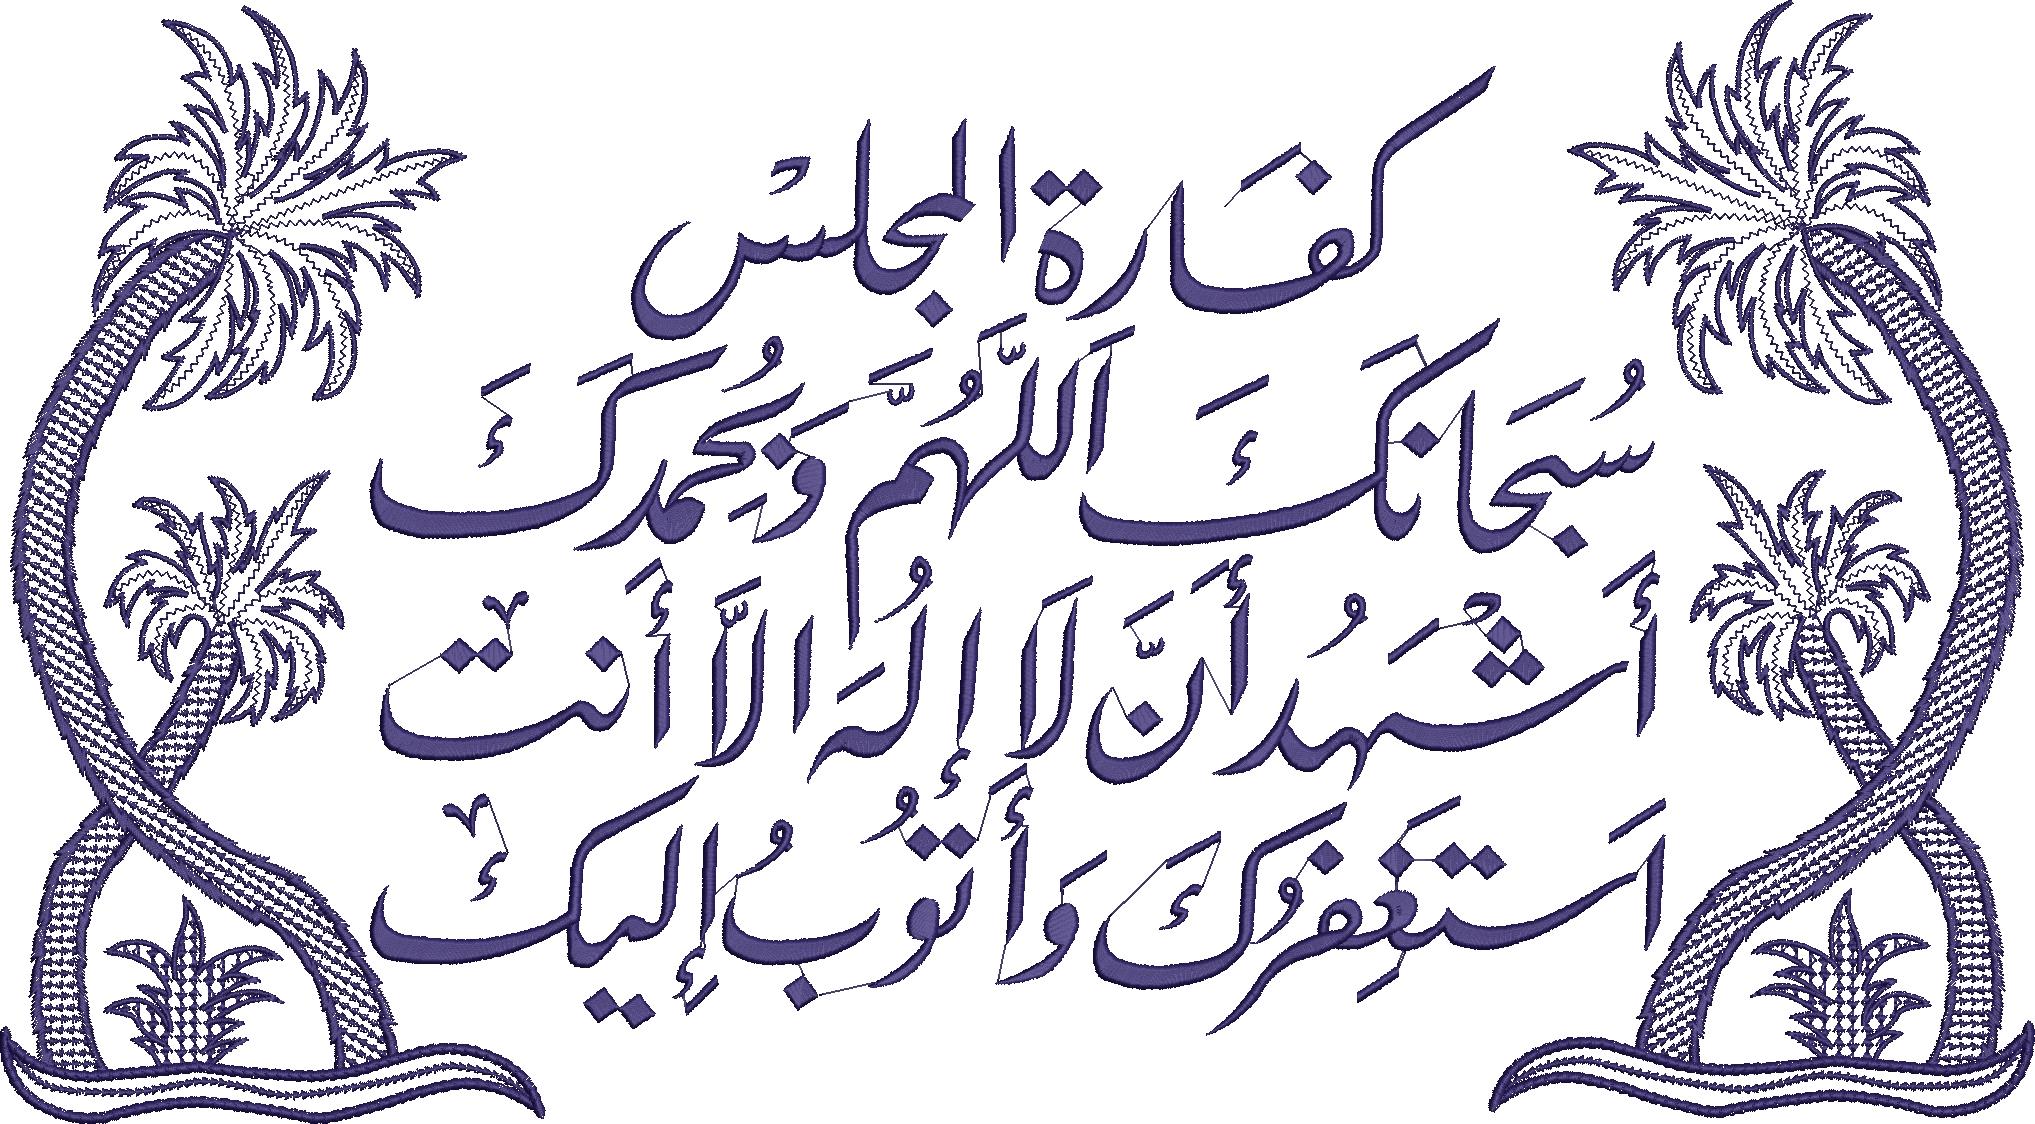 كفارة المجلس
سُبَحانَكَ اَللَّهُمَّ وَبِحُمدِكَ
أَشْهَدُ أَنَّ لَا إِلَهُ الاَّ أَنتْ
اَستَغفِرُكَ وَأَتُوُبُ إِليكْ